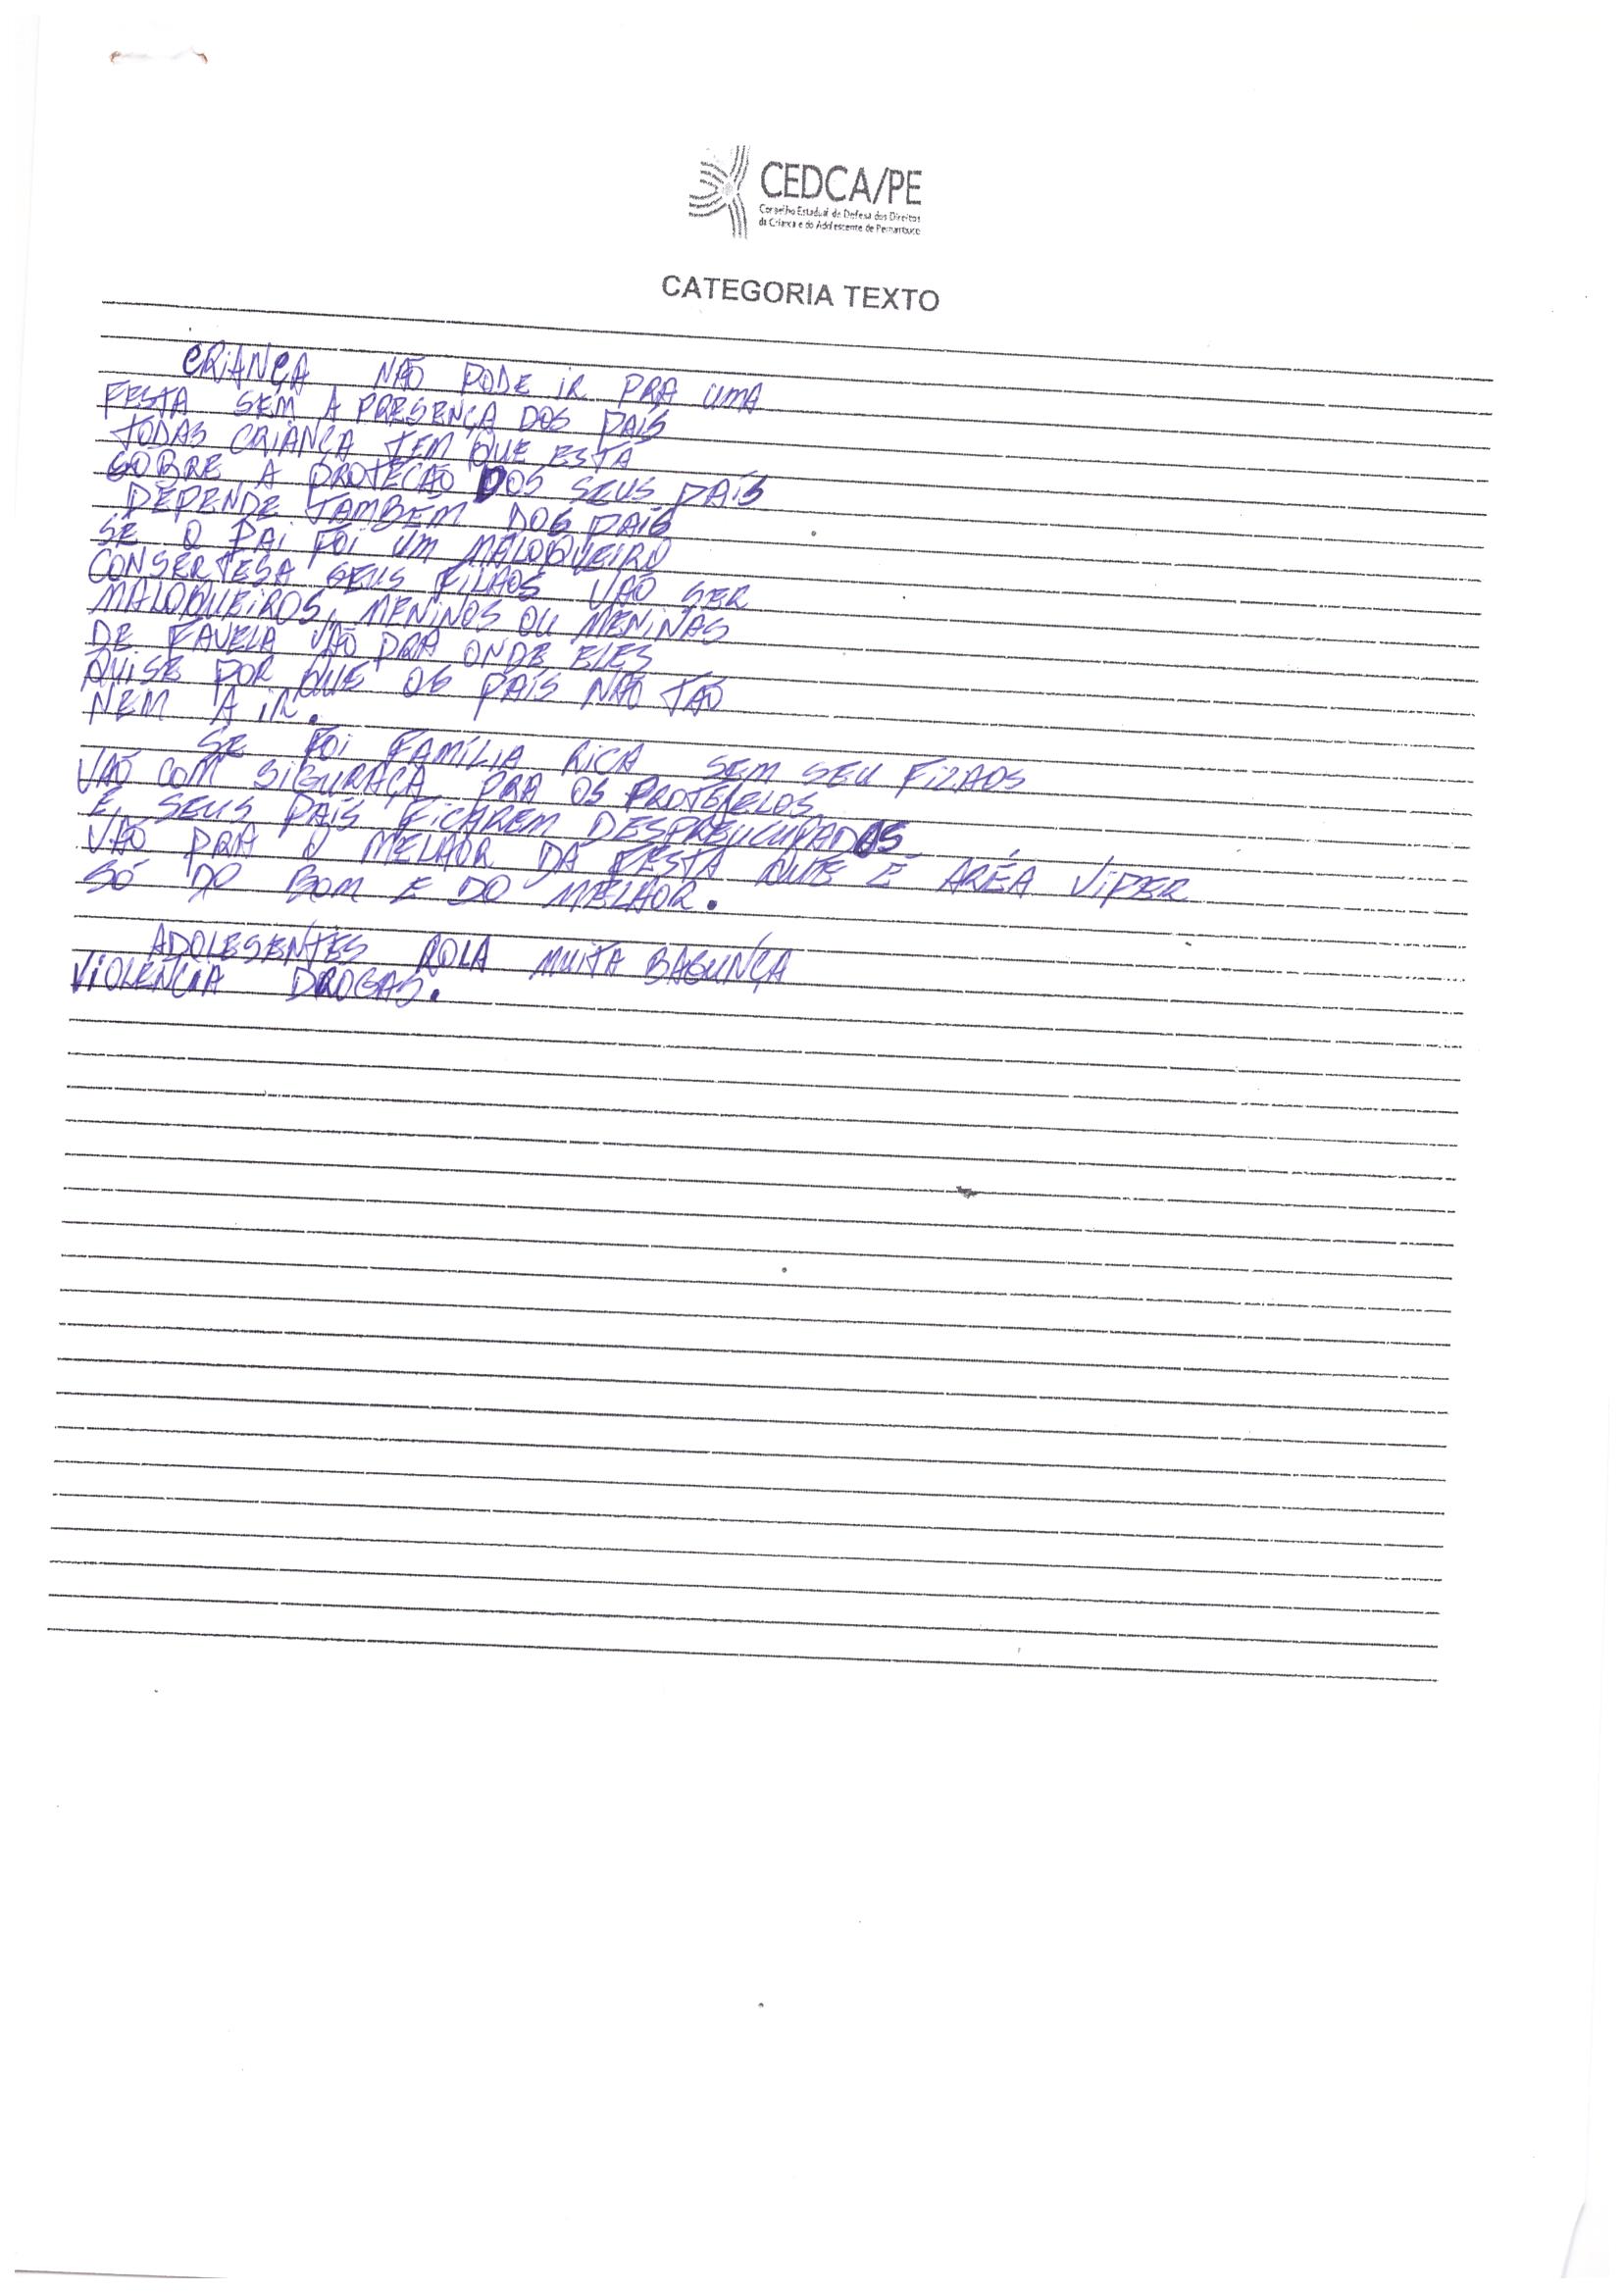 CEDCA/PE
Conselho Estadual de Defesa dos Direitos
da Criança e do Adolescente de Pernambuco
CATEGORIA TEXTO
CRIANÇA NÃO PODE IR PRA UMA
FESTA SEM A PRESENÇA DOS PAÍS
TODAS CRIANÇA TEM QUE ESTÁ
SOBRE A PROTECÃO DOS SEUS PAÍS
DEPENDE TAMBÉM DOS PAÍS
SE O PAI FOI UM MALOQUEIRO
CONSERTESA SEUS FILHOS VÃO SER
MALOQUEIROS, MENINOS OU MENINAS
DE FAVELA VÃO PRA ONDE ELES
QUISE POR QUE OS PAÍS NÃO TÃO
NEM A IR.
SE FOI FAMÍLIA RICA SEM SEU FILHOS
VÃO COM SIGURAÇA PRA OS PROTEJELOS
E SEUS PAÍS FICAREM DESPREUCUPADOS
VÃO PRA O MELHOR DA FESTA QUE É ARÉA VIPER
SÓ DO BOM E DO MELHOR.
ADOLESENTES ROLA MUITA BAGUNÇA
VIOLÊNCIA DROGAS.